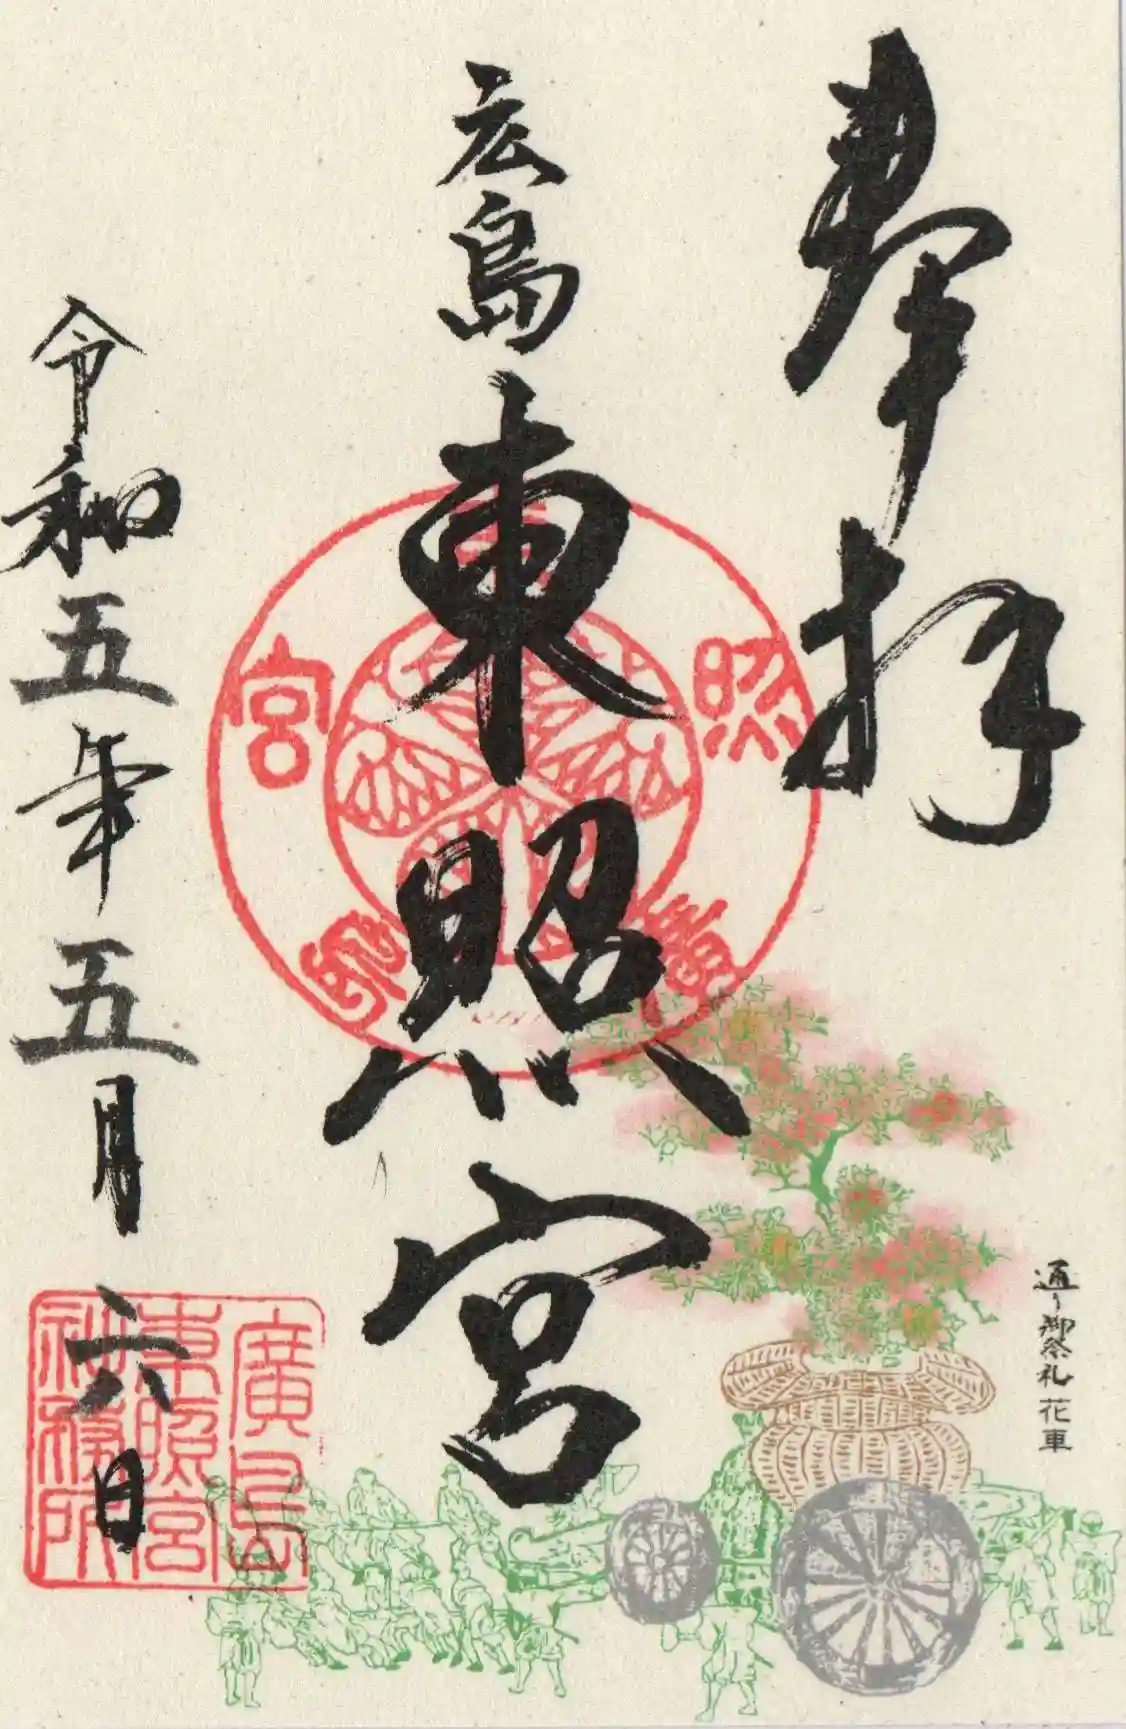 奉拝
広島
東照宮
令和五年五月六日
通り御祭礼花車
東照宮廣島
廣島
東照宮
社務所